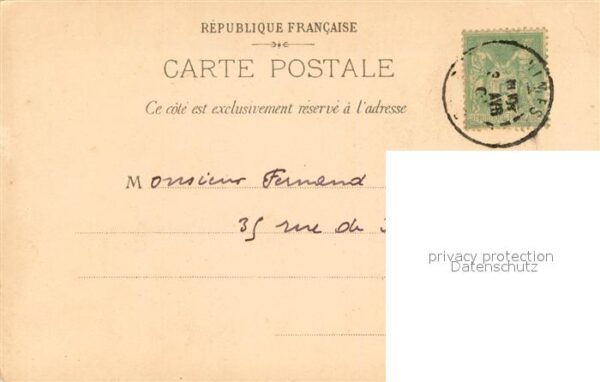 RÉPUBLIQUE FRANÇAISE
CARTE POSTALE
Ce côté est exclusivement réservé à l'adresse
NIMES
AVR
Monsieur Fernand
35 rue de
privacy protection
Datenschutz